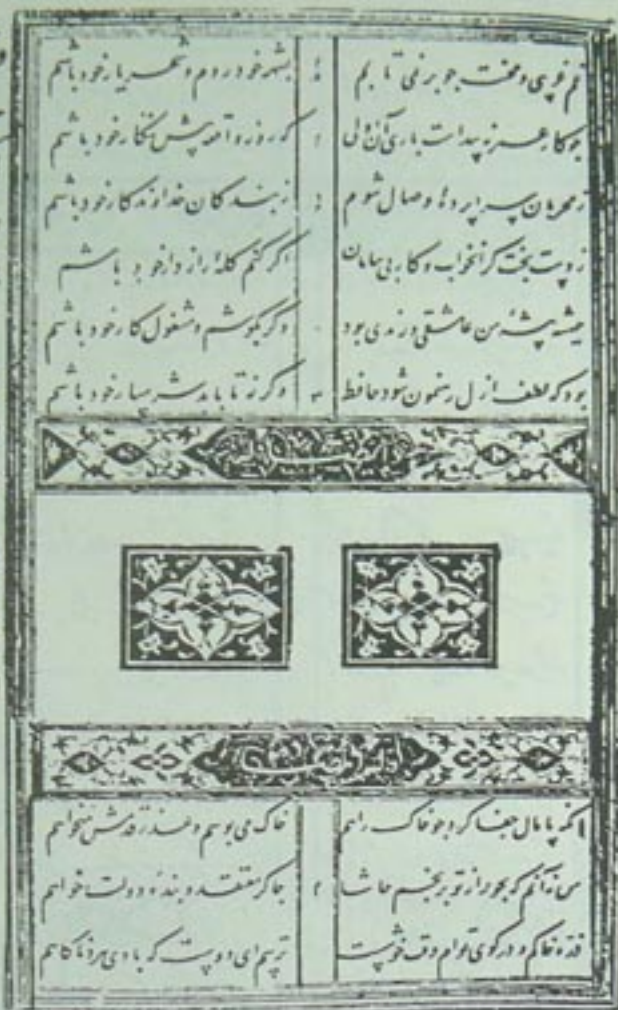 غم غریبی و محنت چو برنمی تابم بشهر خود روم و شهریار خود باشم
چو کار عمر نه پیداست باری آن اولی که روز واقعه پیش نگار خود باشم
ز محرمان سراپرده وصال شوم ز بندگان خداوندکار خود باشم
ز دست بخت گران خواب و کار بی سامان اگر کنم کله راز دار خود باشم
همیشه پیشه من عاشقی و رندی بود دگر بکوشم و مشغول کار خود باشم
بود که لطف ازل رهنمون شود حافظ وگرنه تا بابد شرمسار خود باشم
آنکه پامال جفا کرد چو خاک راهم خاک می بوسم و عذر قدمش میخواهم
من نه آنم که بجور از تو برنجم حاشا چاکر معتقد و بنده دولت خواهم
ذره خاکم و در کوی توام وقت خوشست ترسم ای دوست که بادی ببرد ناکاهم